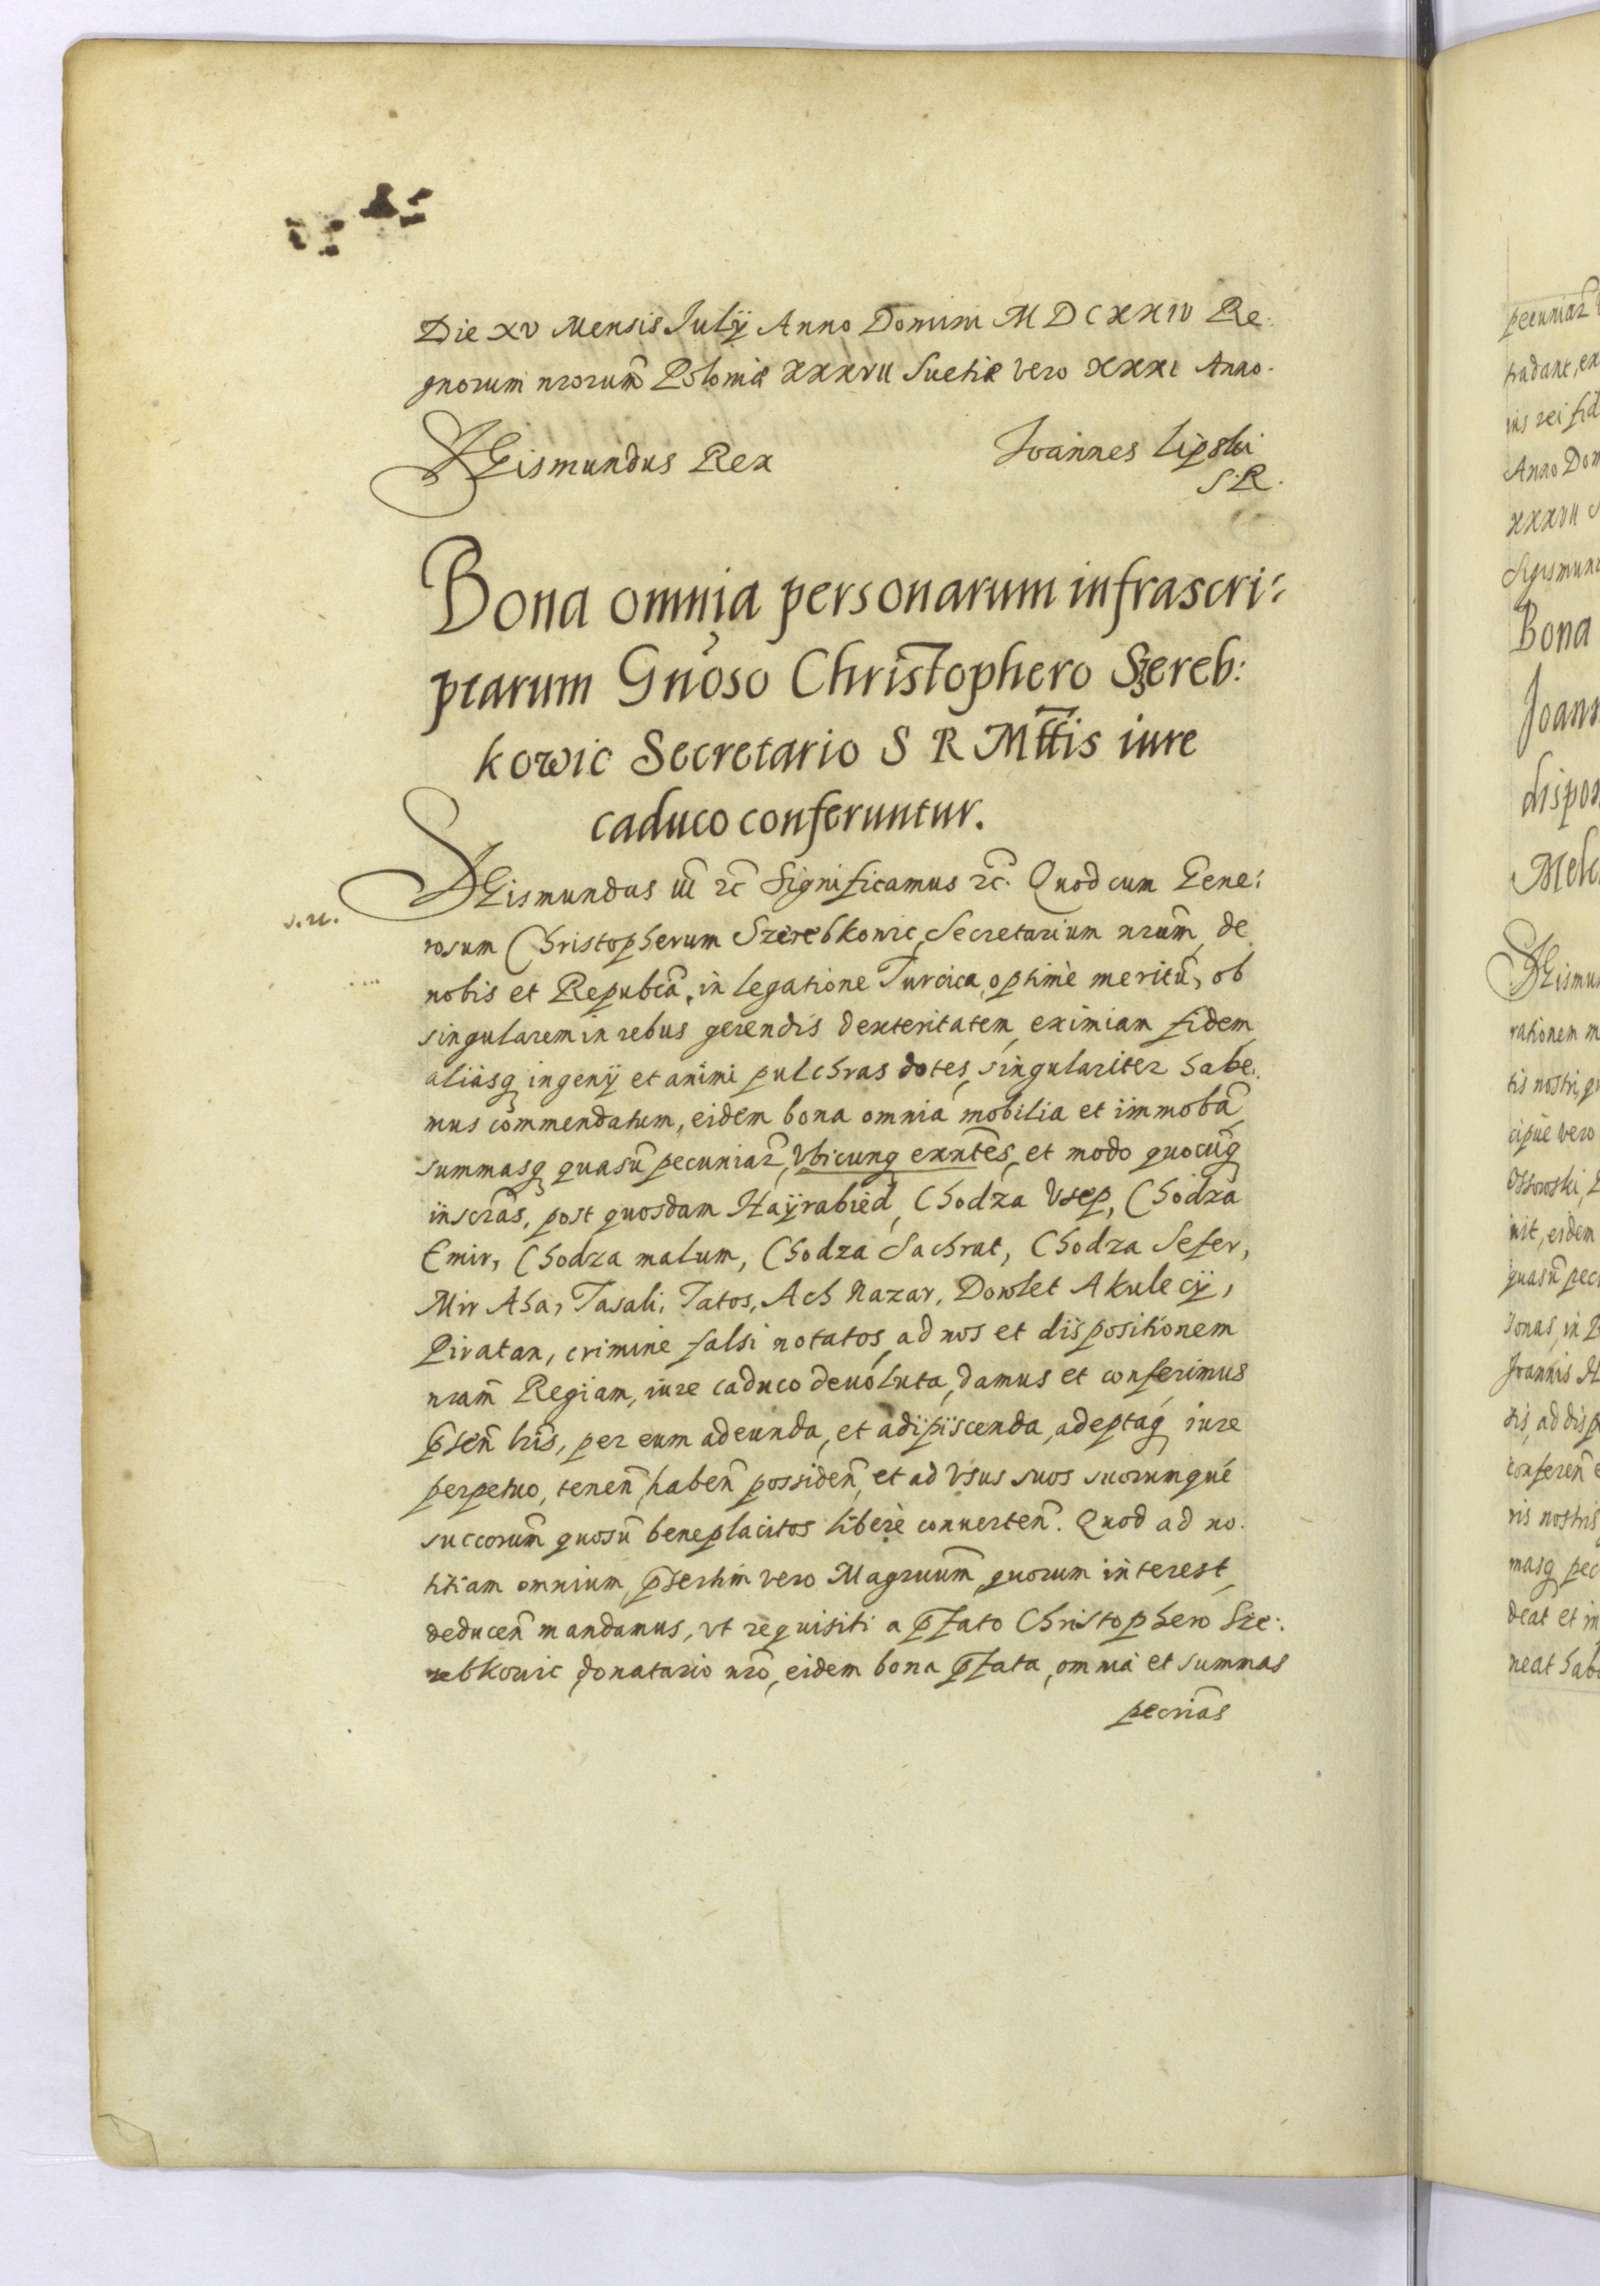 Die XV Mensis Julÿ Anno Domini MDCXXIV Re:
gnorum nrorum̃ Poloniæ XXXVII Suetiæ vero XXXI Anno.
SGismundus Rex
Joannes Lipski
S.R.
Bona omnia personarum infrascri:
ptarum Gnoso Christophero Szereb:
kowic Secretario S R Mttis iure
caduco conferuntur.
SGismundus iii &c̃ Significamus &c̃. Quod cum Gene:
rosum Christopherum Szerebkowic, Secretarium nrum̃, de
nobis et Repubca, in legatione Turcica, optimè meritũ, ob
singularem in rebus gerendis dexteritatem, eximiam fidem
aliasq ingenÿ et animi pulchras dotes, singulariter habe:
mus commendatum, eidem bona omnia mobilia et immobã
summasq quasũ pecuniar̃, Vbicunq exñtes, et modo quocũq
inscr̃as, post quosdam Hayrabied, Chodza Vsep, Chodza
Emir, Chodza malum, Chodza Sachrat, Chodza Sefer,
Mir Aha, Tasali, Tatos, Ach Nazar, Dowlet Akulecÿ,
Piratan, crimine falsi notatos, ad nos et dispositionem
nram̃ Regiam, iure caduco deuoluta, damus et conferimus
p̃sen̄ lr̃is, per eum adeunda, et adipiscenda, adeptaq iure
perpetuo, tenen̄, haben̄ possiden̄, et ad Vsus suos suorumque
succorum̃ quosũ beneplacitos liberè conuerten̄. Quod ad no:
titiam omnium, p̃sertim vero Magruum̃, quorum interest,
deducen̄ mandamus, vt requisiti a p̃fato Christophero Sze:
rebkowic donatario nr̃o, eidem bona p̃fata, omnia et summas
pecrias̃
s.n.